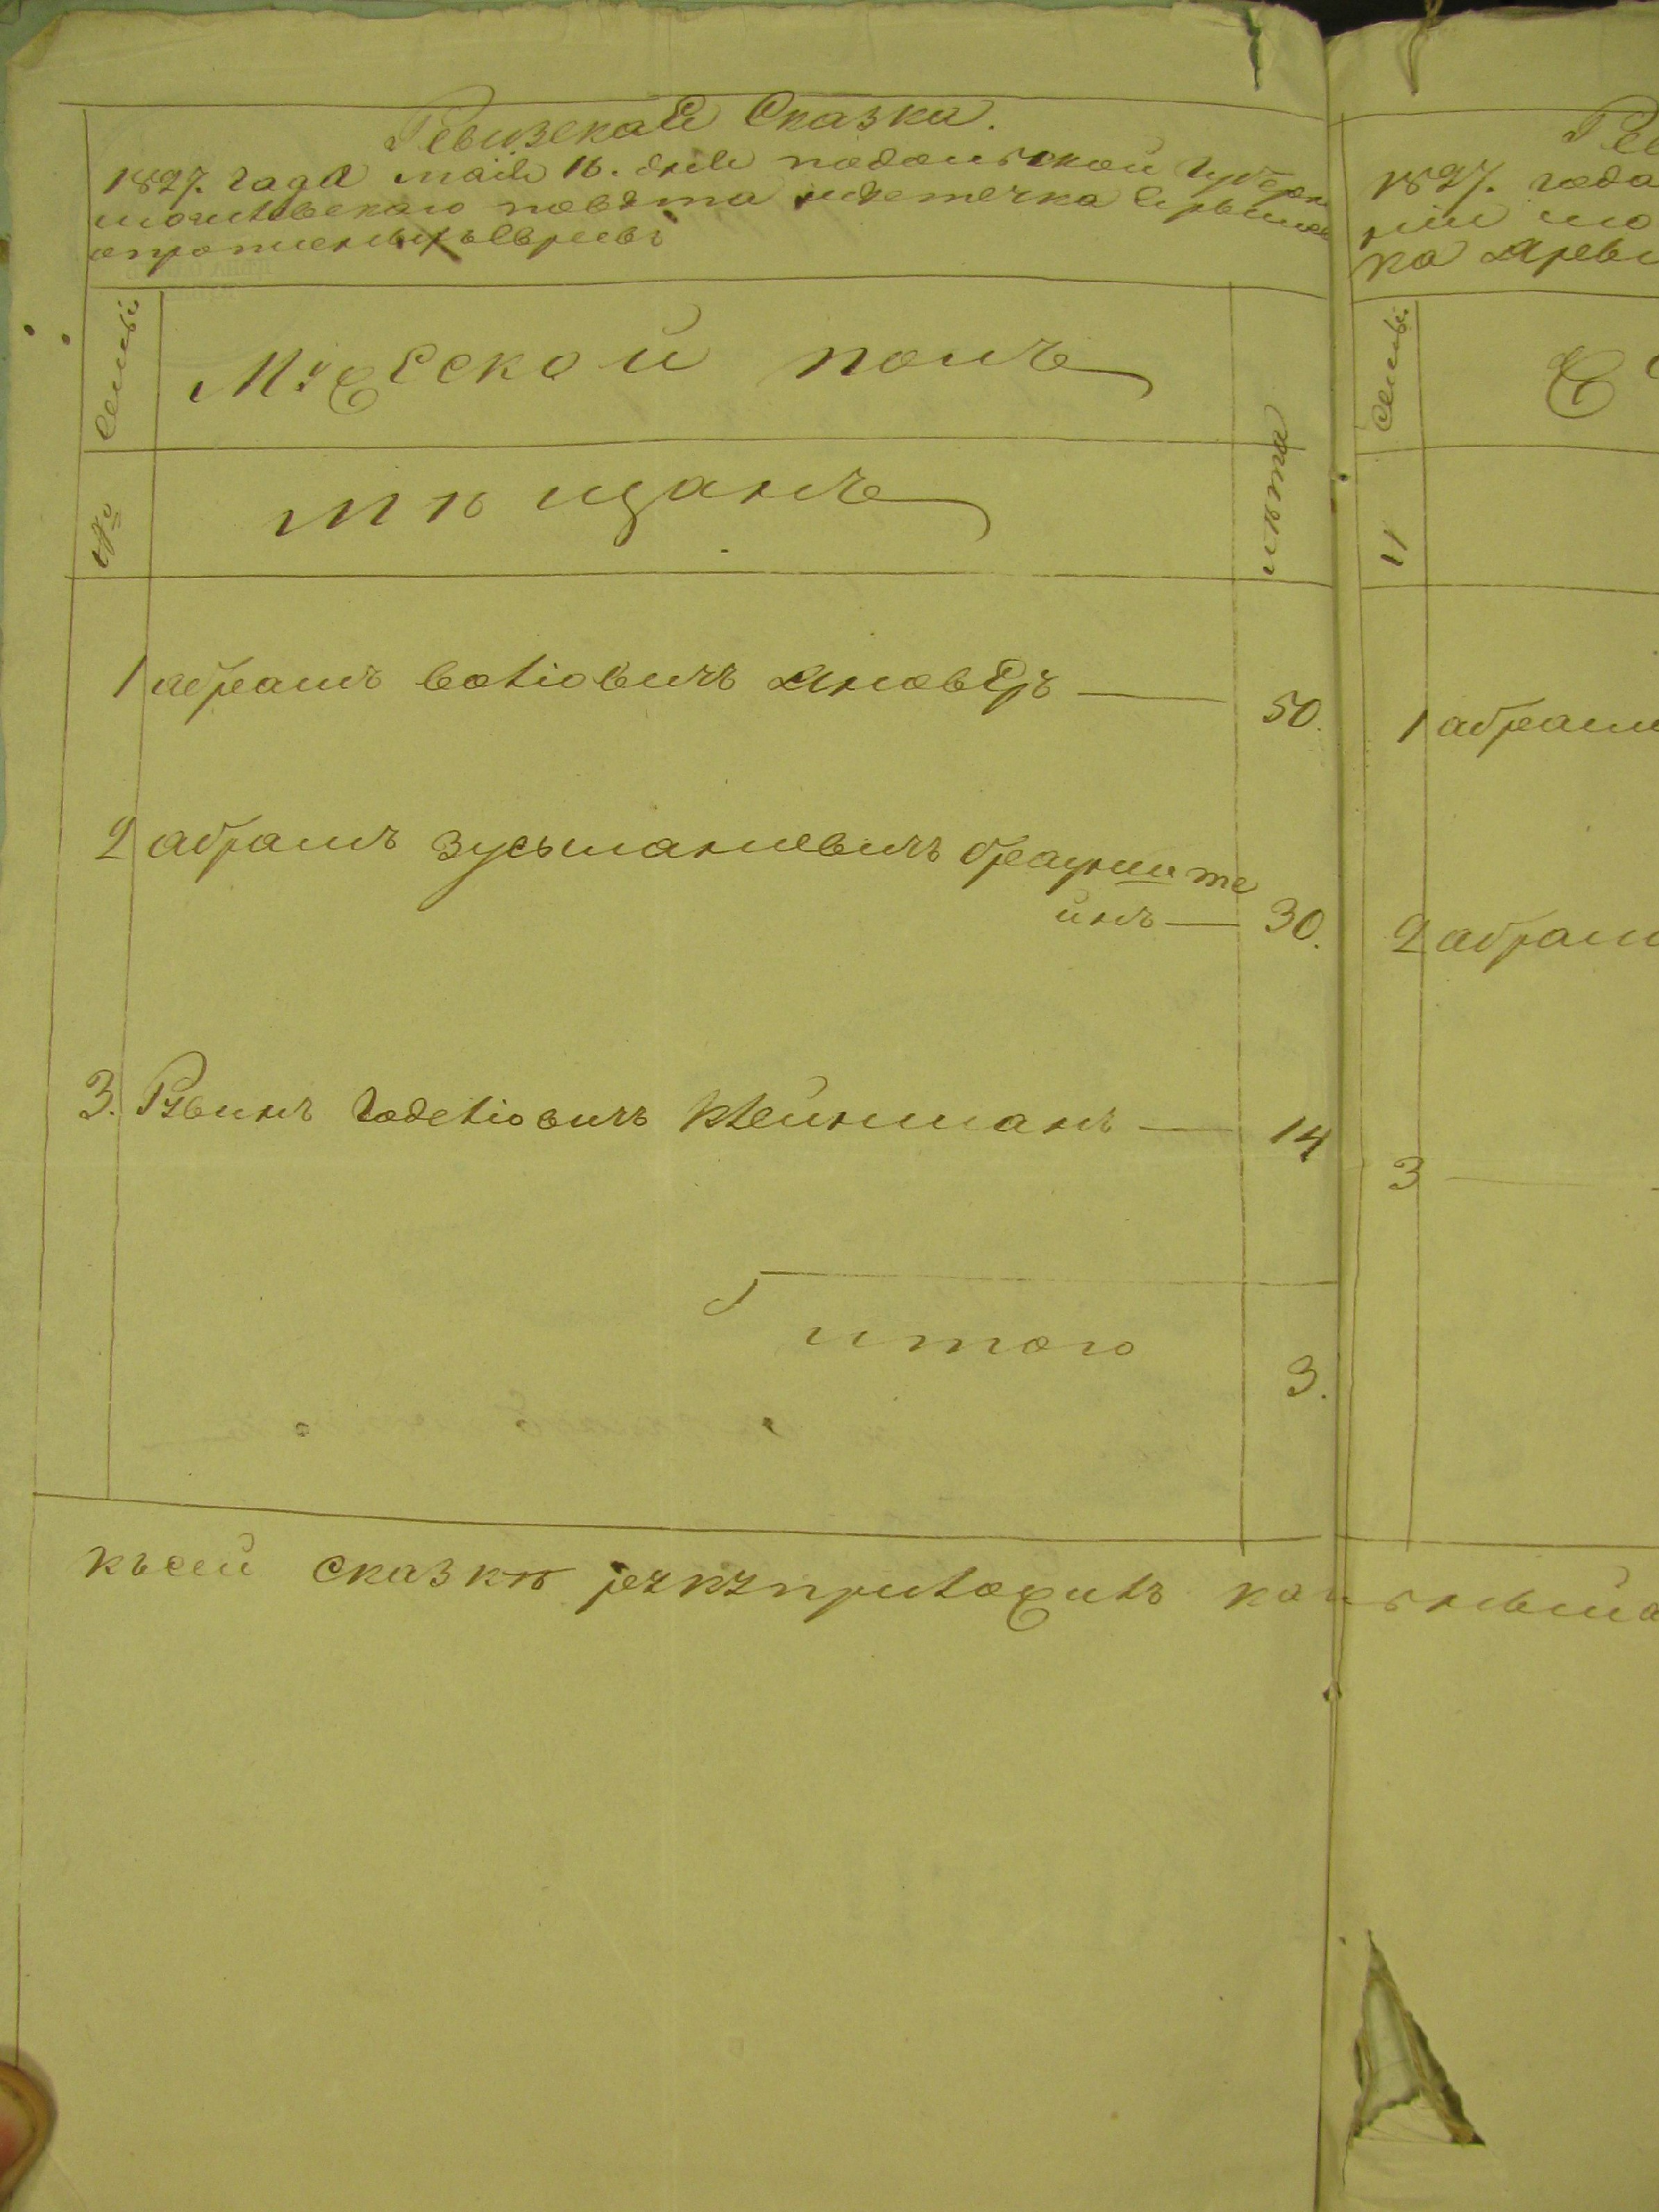 Ревизская Сказка.
1827. года маия 16. дня подольской губерн
могилевского повета местечка
о евреевъ
№ Семьи
Мужеской полъ
лѣта
мѣщанъ
1 абрамъ волiовичъ яновѣръ — 50.
2 абрамъ Зусьмановичъ брауншите
йнъ — 30.
3. Рувинъ Годелiовичъ клейнманъ — 14
итого
3.
къ сей сказкѣ руку приложилъ
Ре
1827. года
нiи мо
ка
Семьи
1 абрам
2 абрам
3